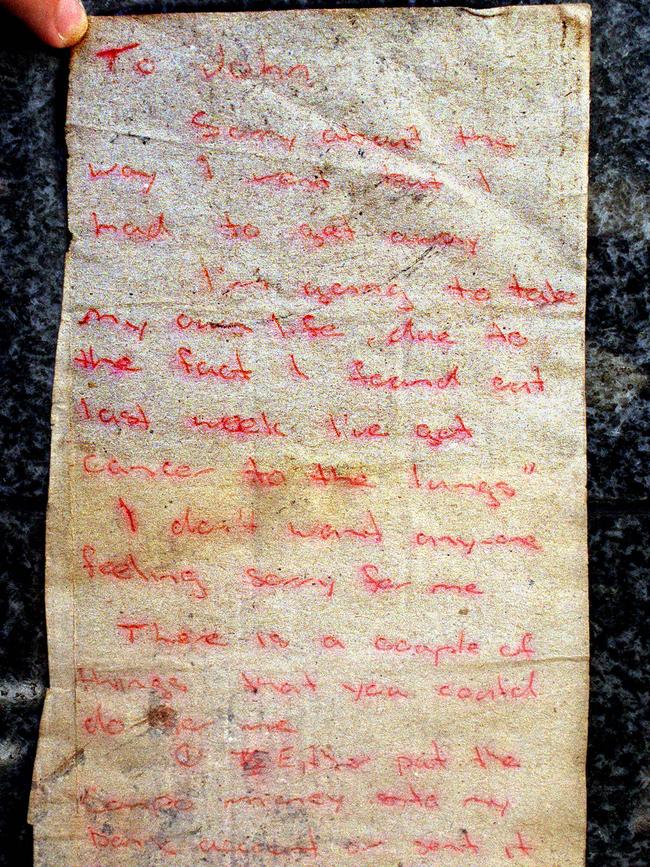 To John
Sorry about the
way I went but I
had to get away
I'm going to take
my own life, due to
the fact I found out
last week I've got
cancer to the lungs"
I don't want anyone
feeling sorry for me
There is a couple of
things that you could
do for me
① Either put the
money into my
bank account or sent it